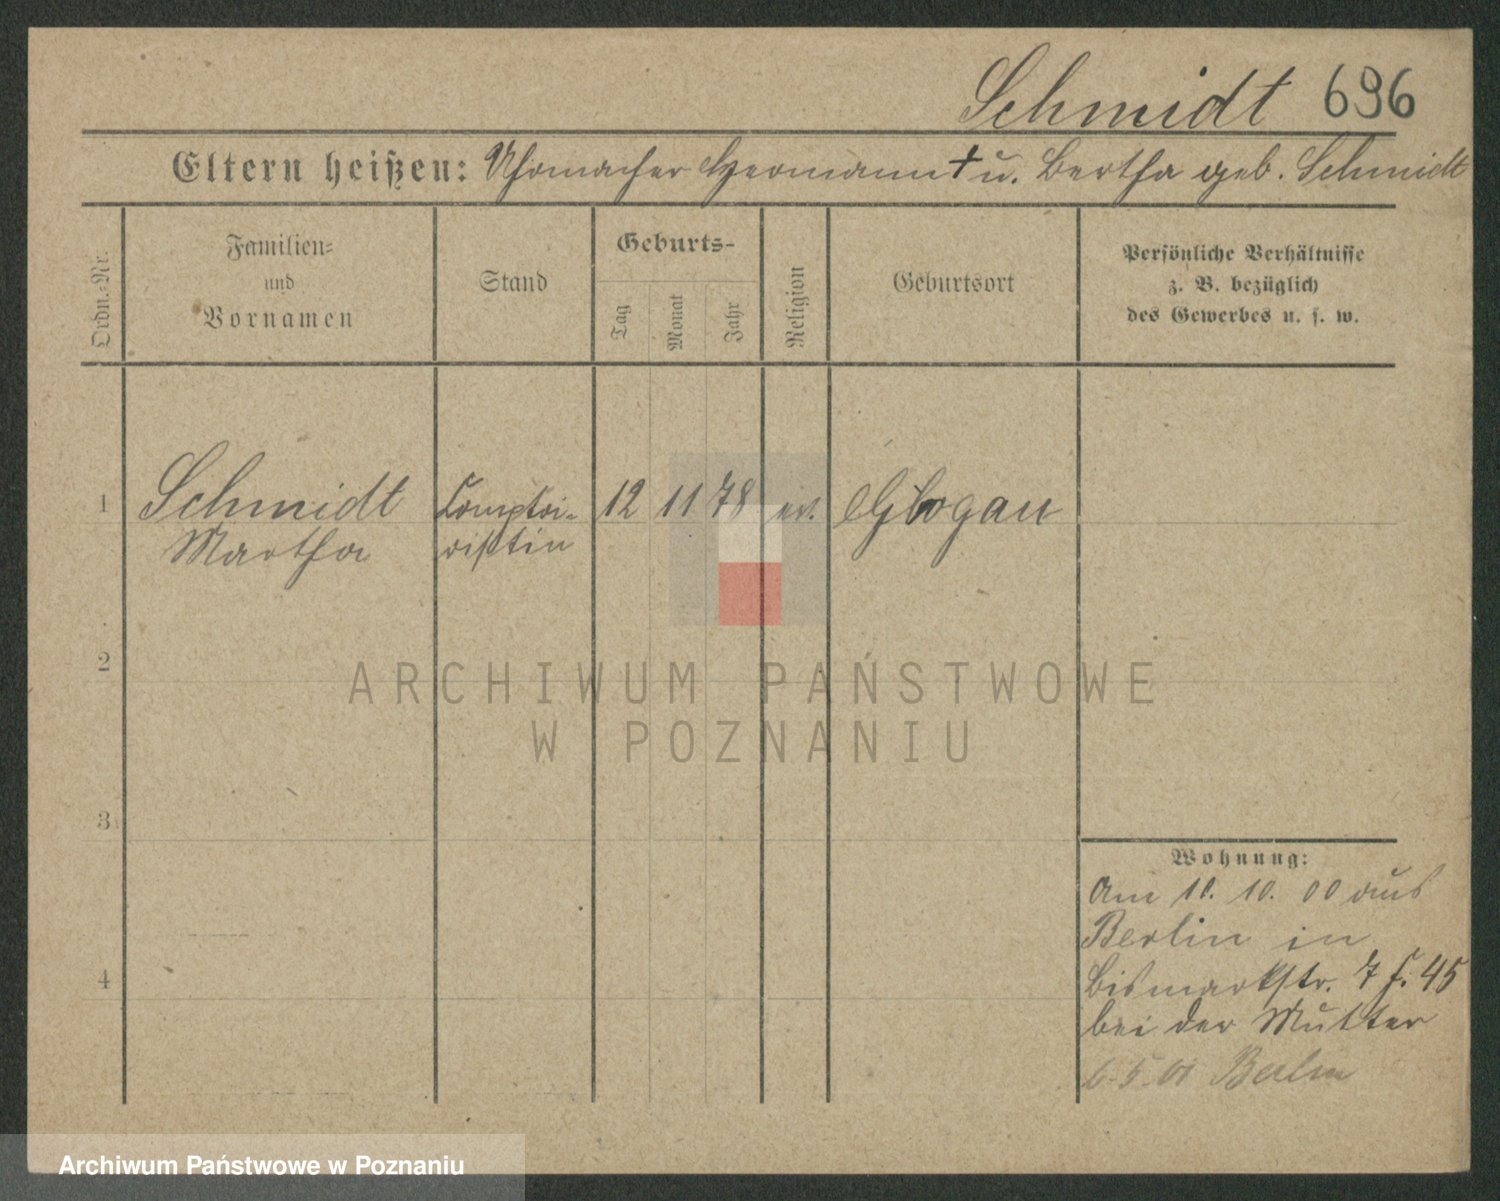 Schmidt 696
Eltern heißen: Uhrmacher Hermann † u. Bertha geb. Schmidt
Ordn.-Nr.
Familien-
und
Vornamen
Stand
Geburts-
Tag
Monat
Jahr
Religion
Geburtsort
Persönliche Verhältnisse
z. B. bezüglich
des Gewerbes u. s. w.
1 Schmidt Comptoi- 12 11 78 ev. Glogau
Martha ristin
2
ARCHIWUM PAŃSTWOWE
W POZNANIU
3
Wohnung:
Am 10. 10. 00 aus
Berlin in
4
Bismarkstr. 7 f. 45
bei der Mutter
6.5.01 Berlin
Archiwum Państwowe w Poznaniu